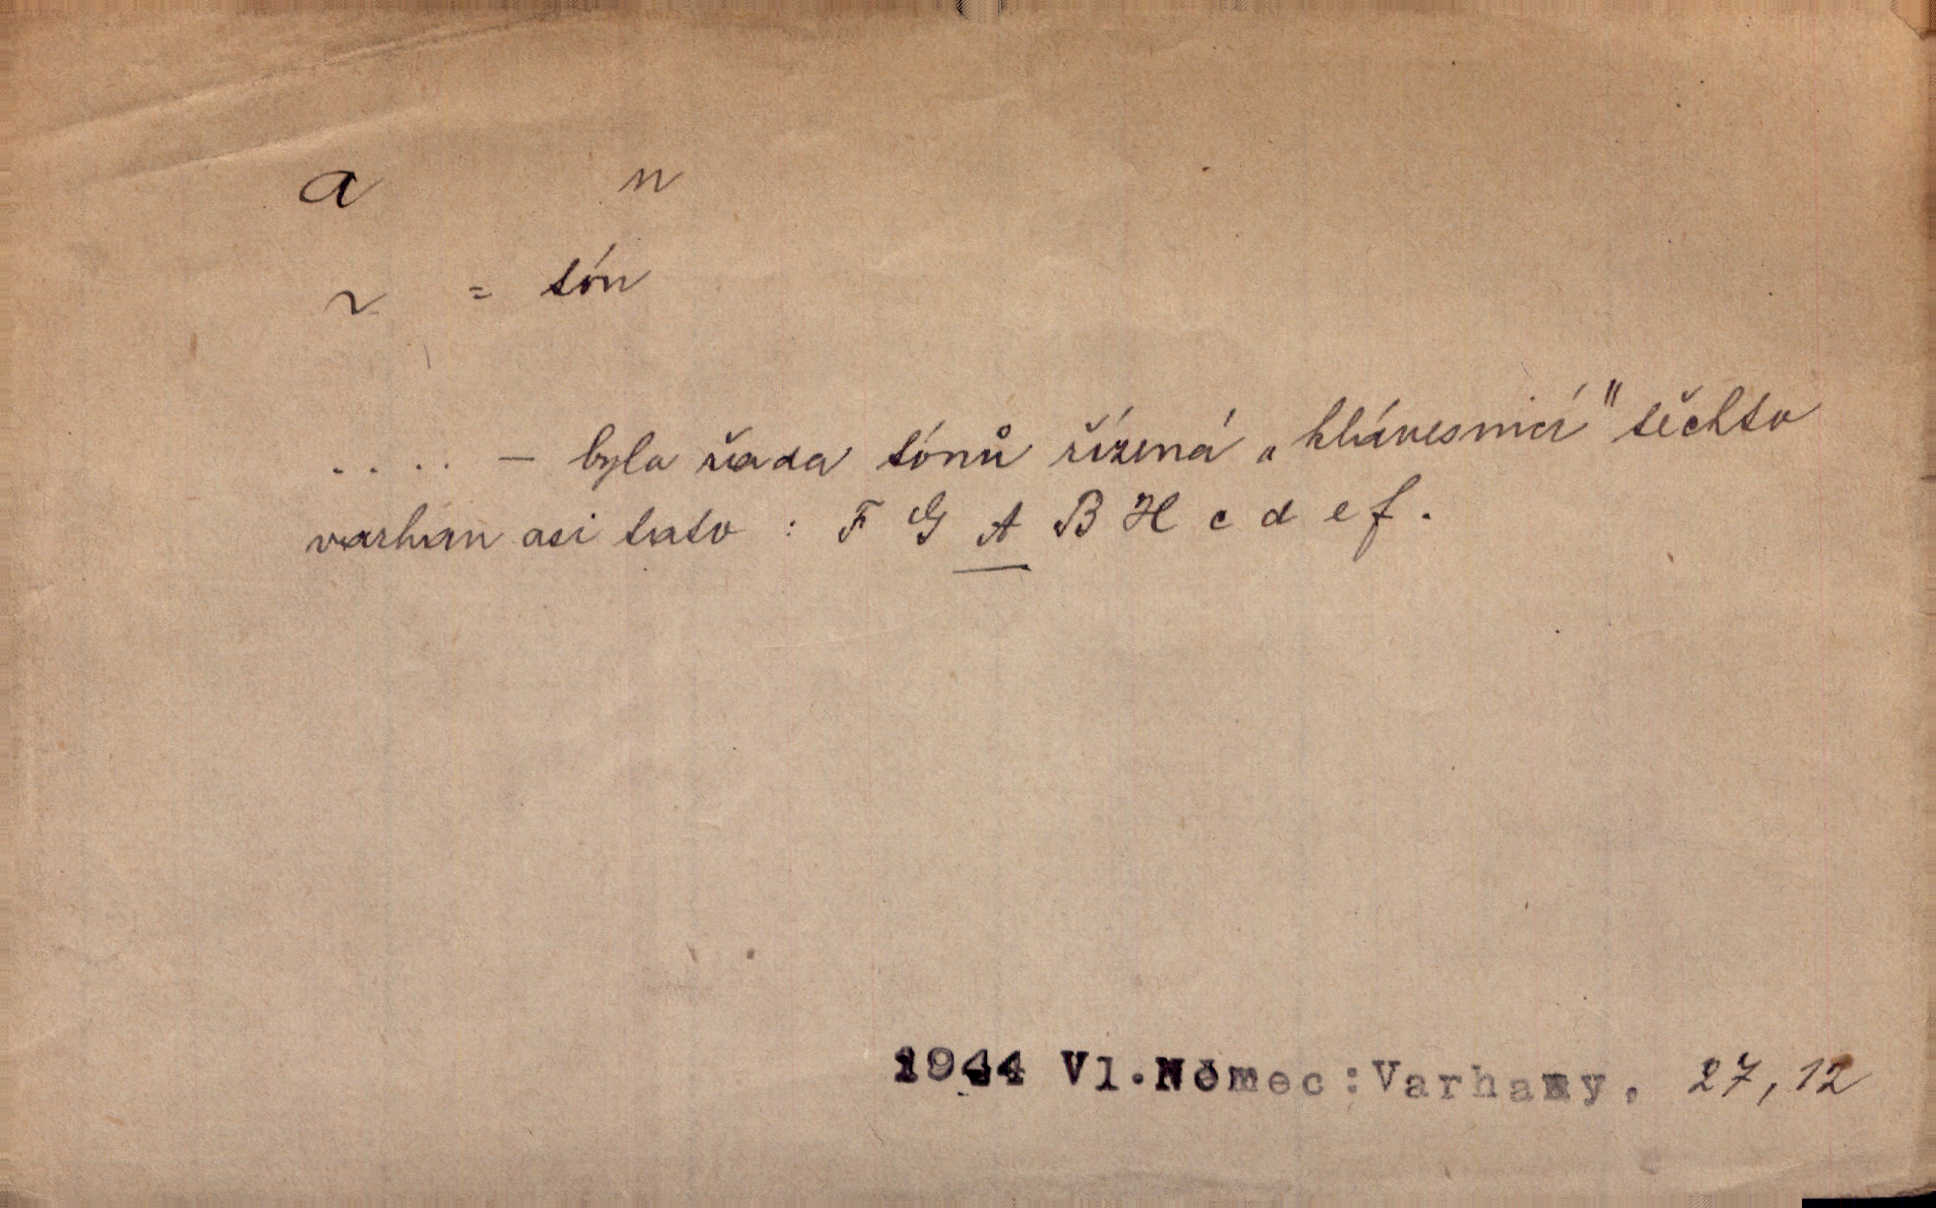 a n
~ = tón
.... — byla řada tónů řízená „klávesnicí" těchto
varhan asi tato : F G A B H c d e f.
1944 Vl.Němec:Varhany, 27,12